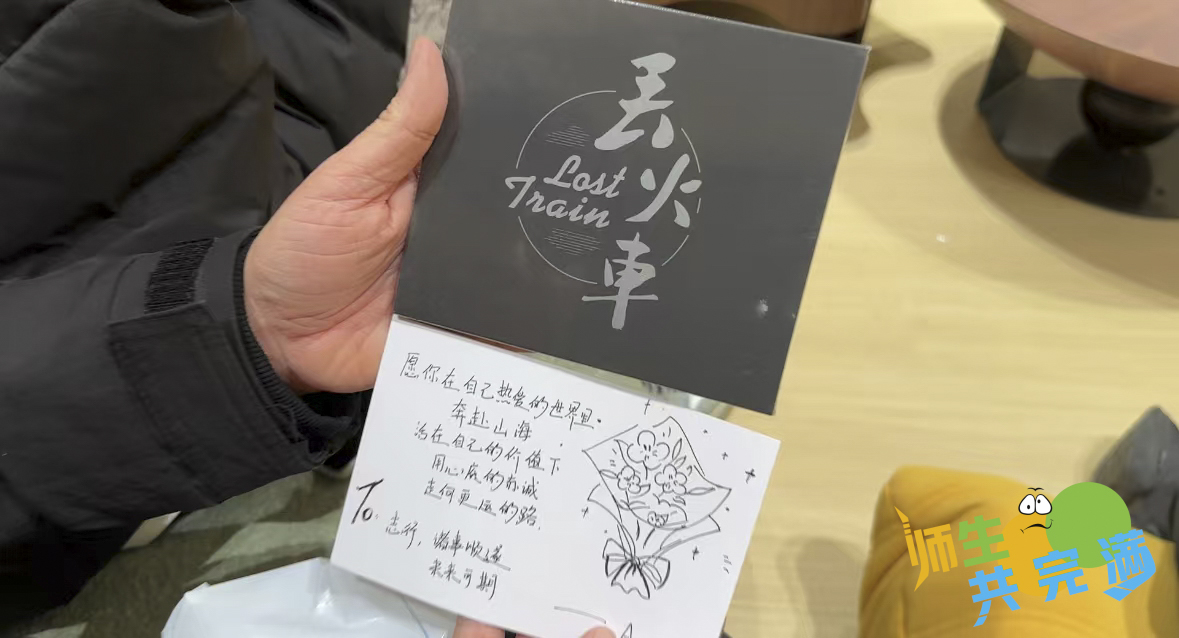 丢火車
Lost
Train
愿你在自己热爱的世界里.
奔赴山海
活在自己的价值下
用心底的赤诚
走向更远的路.
To.
志行,诸事顺遂
未来可期
师生
共完满